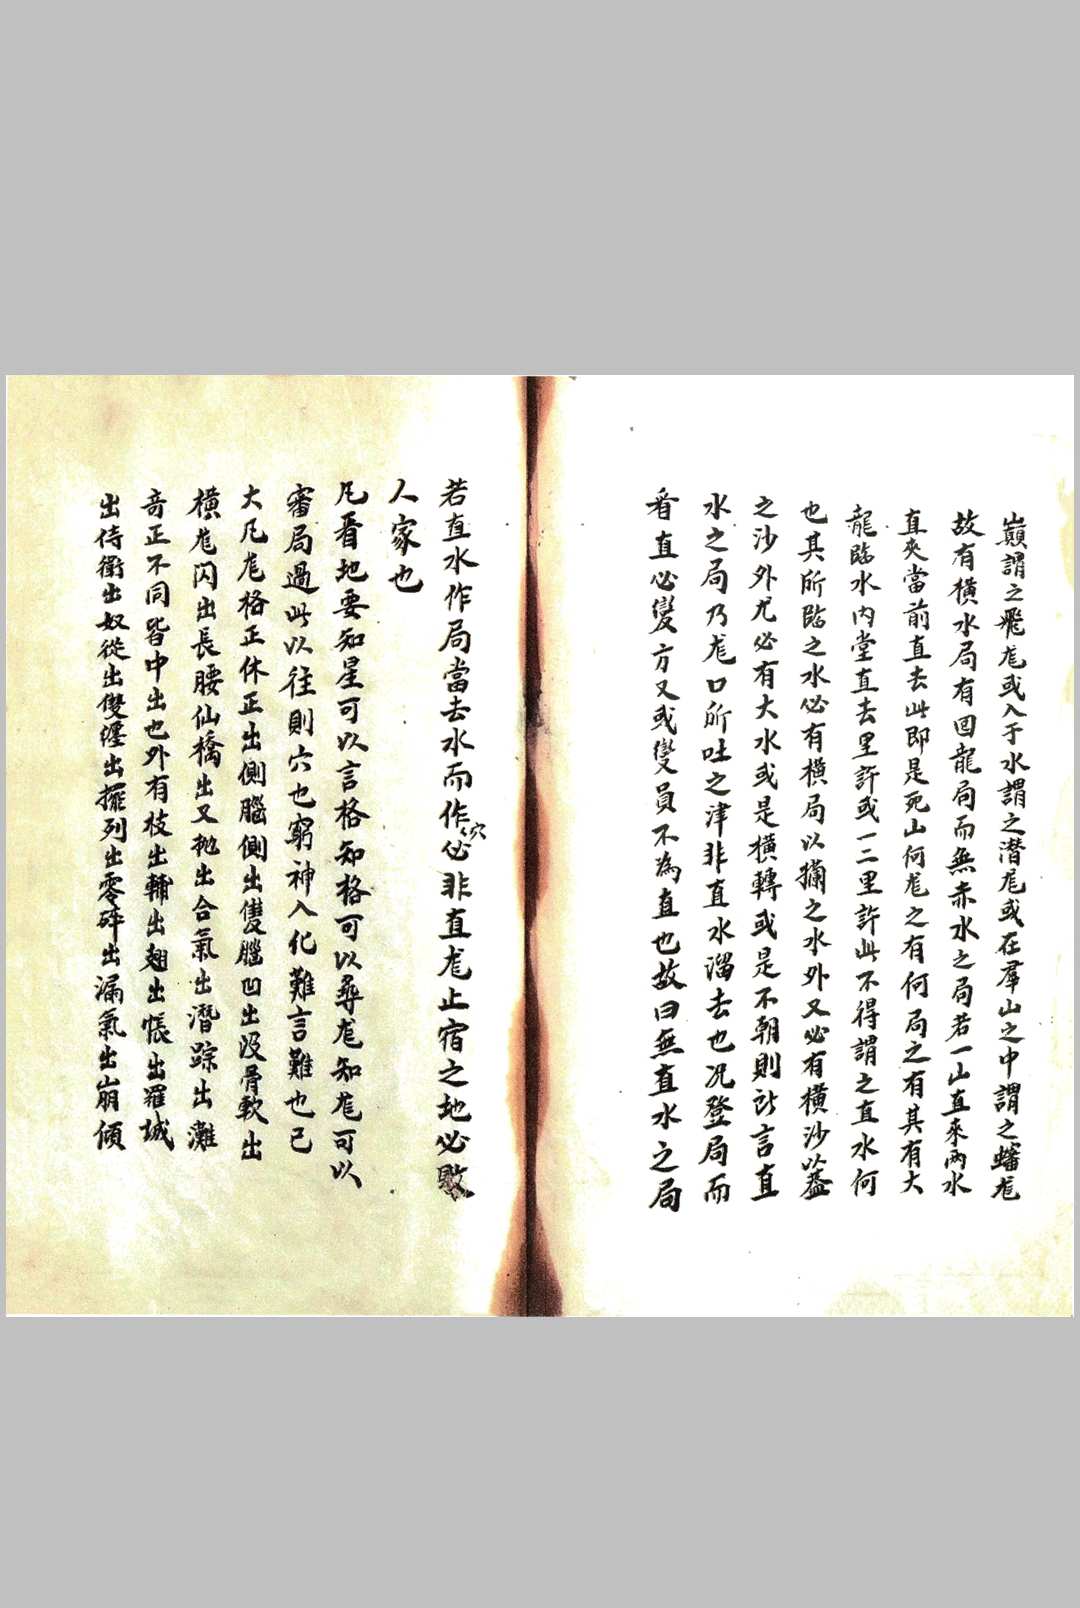 巔謂之飛尨或入于水謂之潛尨或在羣山之中謂之蟠尨
故有橫水局有回龍局而無赤水之局若一山直來兩水
直夾當前直去此即是死山何尨之有何局之有其有大
龍臨水內堂直去里許或一二里許此不得謂之直水何
也其所臨之水必有橫局以攔之水外又必有橫沙以蓋
之沙外尤必有大水或是橫轉或是不朝則所言直
水之局乃尨口所吐之津非直水溜去也况登局而
看直必變方又或变員不為直也故曰無直水之局
若直水作局當去水而作穴必非直尨止宿之地必敗
人家也
凡看地要知星可以言格知格可以尋尨知尨可以
審局過此以往則穴也窮神入化難言難也已
大凡尨格正休正出側腦側出雙腦凹出没骨軟出
橫尨閃出長腰仙橋出又抛出合氣出潛踪出灘
奇正不同皆中出也外有枝出輔出翅出帳出羅城
出侍衛出奴從出雙纏出擺列出零碎出漏氣出崩傾